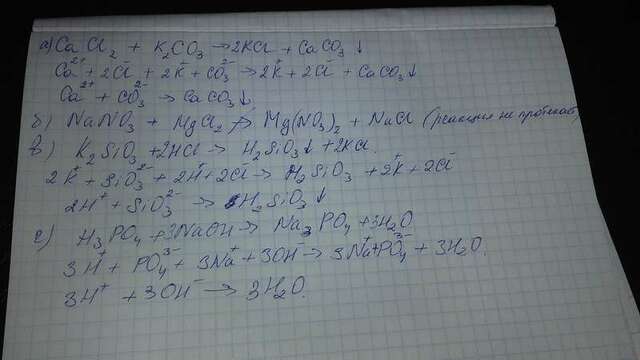 а) CaCl₂ + K₂CO₃ → 2KCl + CaCO₃↓
Ca²⁺ + 2Cl⁻ + 2K⁺ + CO₃²⁻ → 2K⁺ + 2Cl⁻ + CaCO₃↓
Ca²⁺ + CO₃²⁻ → CaCO₃↓
б) NaNO₃ + MgCl₂ ↛ Mg(NO₃)₂ + NaCl (реакция не протекает)
в) K₂SiO₃ + 2HCl → H₂SiO₃↓ + 2KCl.
2K⁺ + SiO₃²⁻ + 2H⁺ + 2Cl⁻ → H₂SiO₃ + 2K⁺ + 2Cl⁻
2H⁺ + SiO₃²⁻ → H₂SiO₃↓
г) H₃PO₄ + 3NaOH → Na₃PO₄ + 3H₂O
3H⁺ + PO₄³⁻ + 3Na⁺ + 3OH⁻ → 3Na⁺ + PO₄³⁻ + 3H₂O.
3H⁺ + 3OH⁻ → 3H₂O.